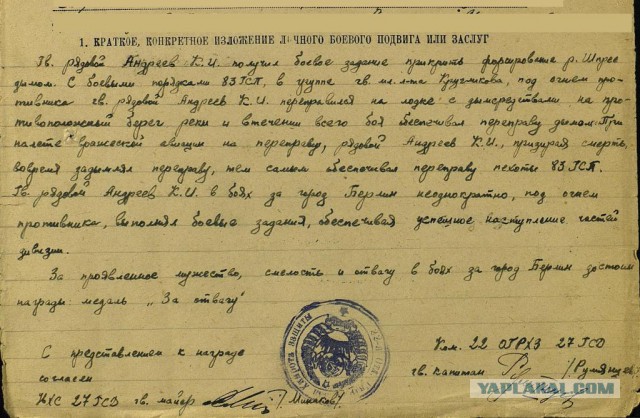 1. КРАТКОЕ, КОНКРЕТНОЕ ИЗЛОЖЕНИЕ ЛИЧНОГО БОЕВОГО ПОДВИГА ИЛИ ЗАСЛУГ
Гв. рядовой Андреев К.И. получил боевое задание прикрыть форсирование р. Шпрее
дымом. С боевыми порядками 83 ГСП, в группе гв. мл. л-та Кругликова, под огнем про-
тивника гв. рядовой Андреев К.И. переправился на лодке с дымсредствами на про-
тивоположный берег реки и втечении всего боя обеспечивал переправу дымом. При
налете вражеской авиации на переправу, рядовой Андреев К.И., призирая смерть,
вовремя задымлял переправу, тем самым обеспечивал переправу пехоты 83 ГСП.
Гв. рядовой Андреев К.И. в боях за город Берлин неоднократно, под огнем
противника, выполнял боевые задания, обеспечивая успешное наступление частей
дивизии.
За проявленное мужество, смелость и отвагу в боях за город Берлин достоин
награды медаль „За отвагу"
С представлением к награде
согласен
НХС 27 ГСД гв. майор /Минаков/
Ком. 22 ОГРХЗ 27 ГСД
гв. капитан /Румянцев/
YAPLAKAL.COM